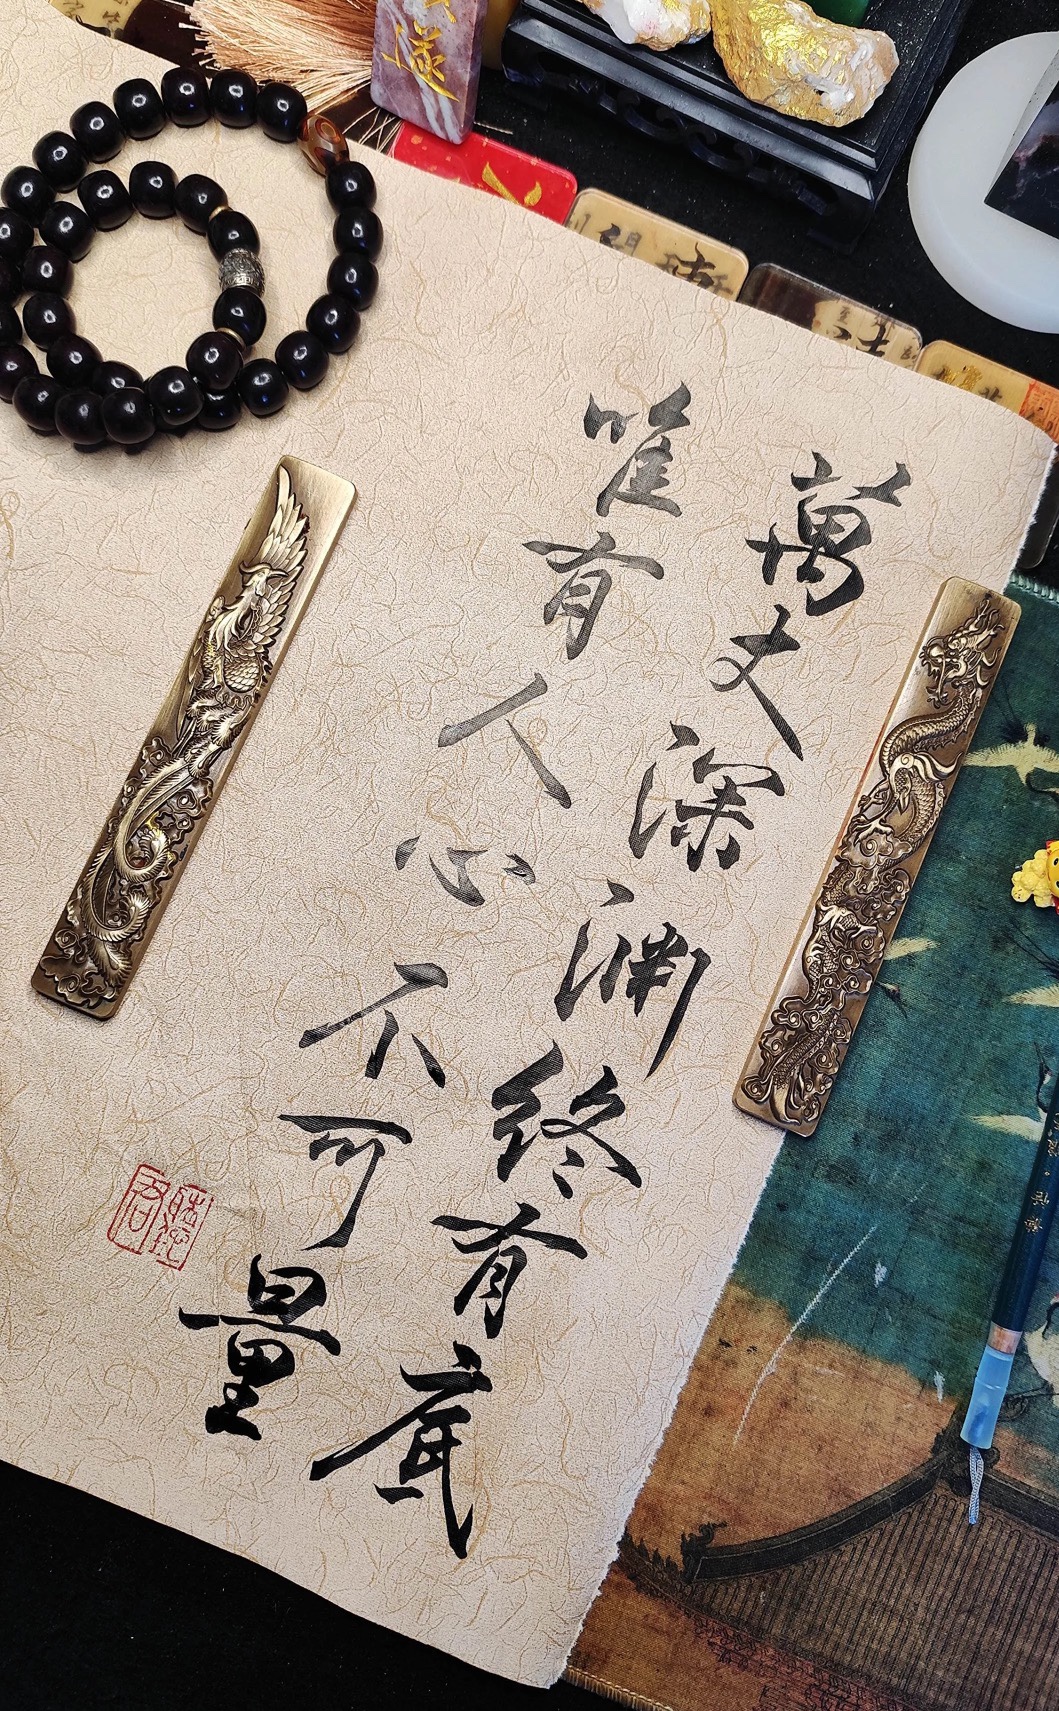 萬丈深渊終有底
唯有人心不可量
遂